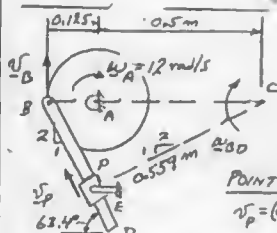 0.125 0.5 m
v_B
ω_A = 12 rad/s
B A C
2
1
2
1
0.559 m
ω_BD
P
v_P
E
63.4°
D
POINT
v_P = (